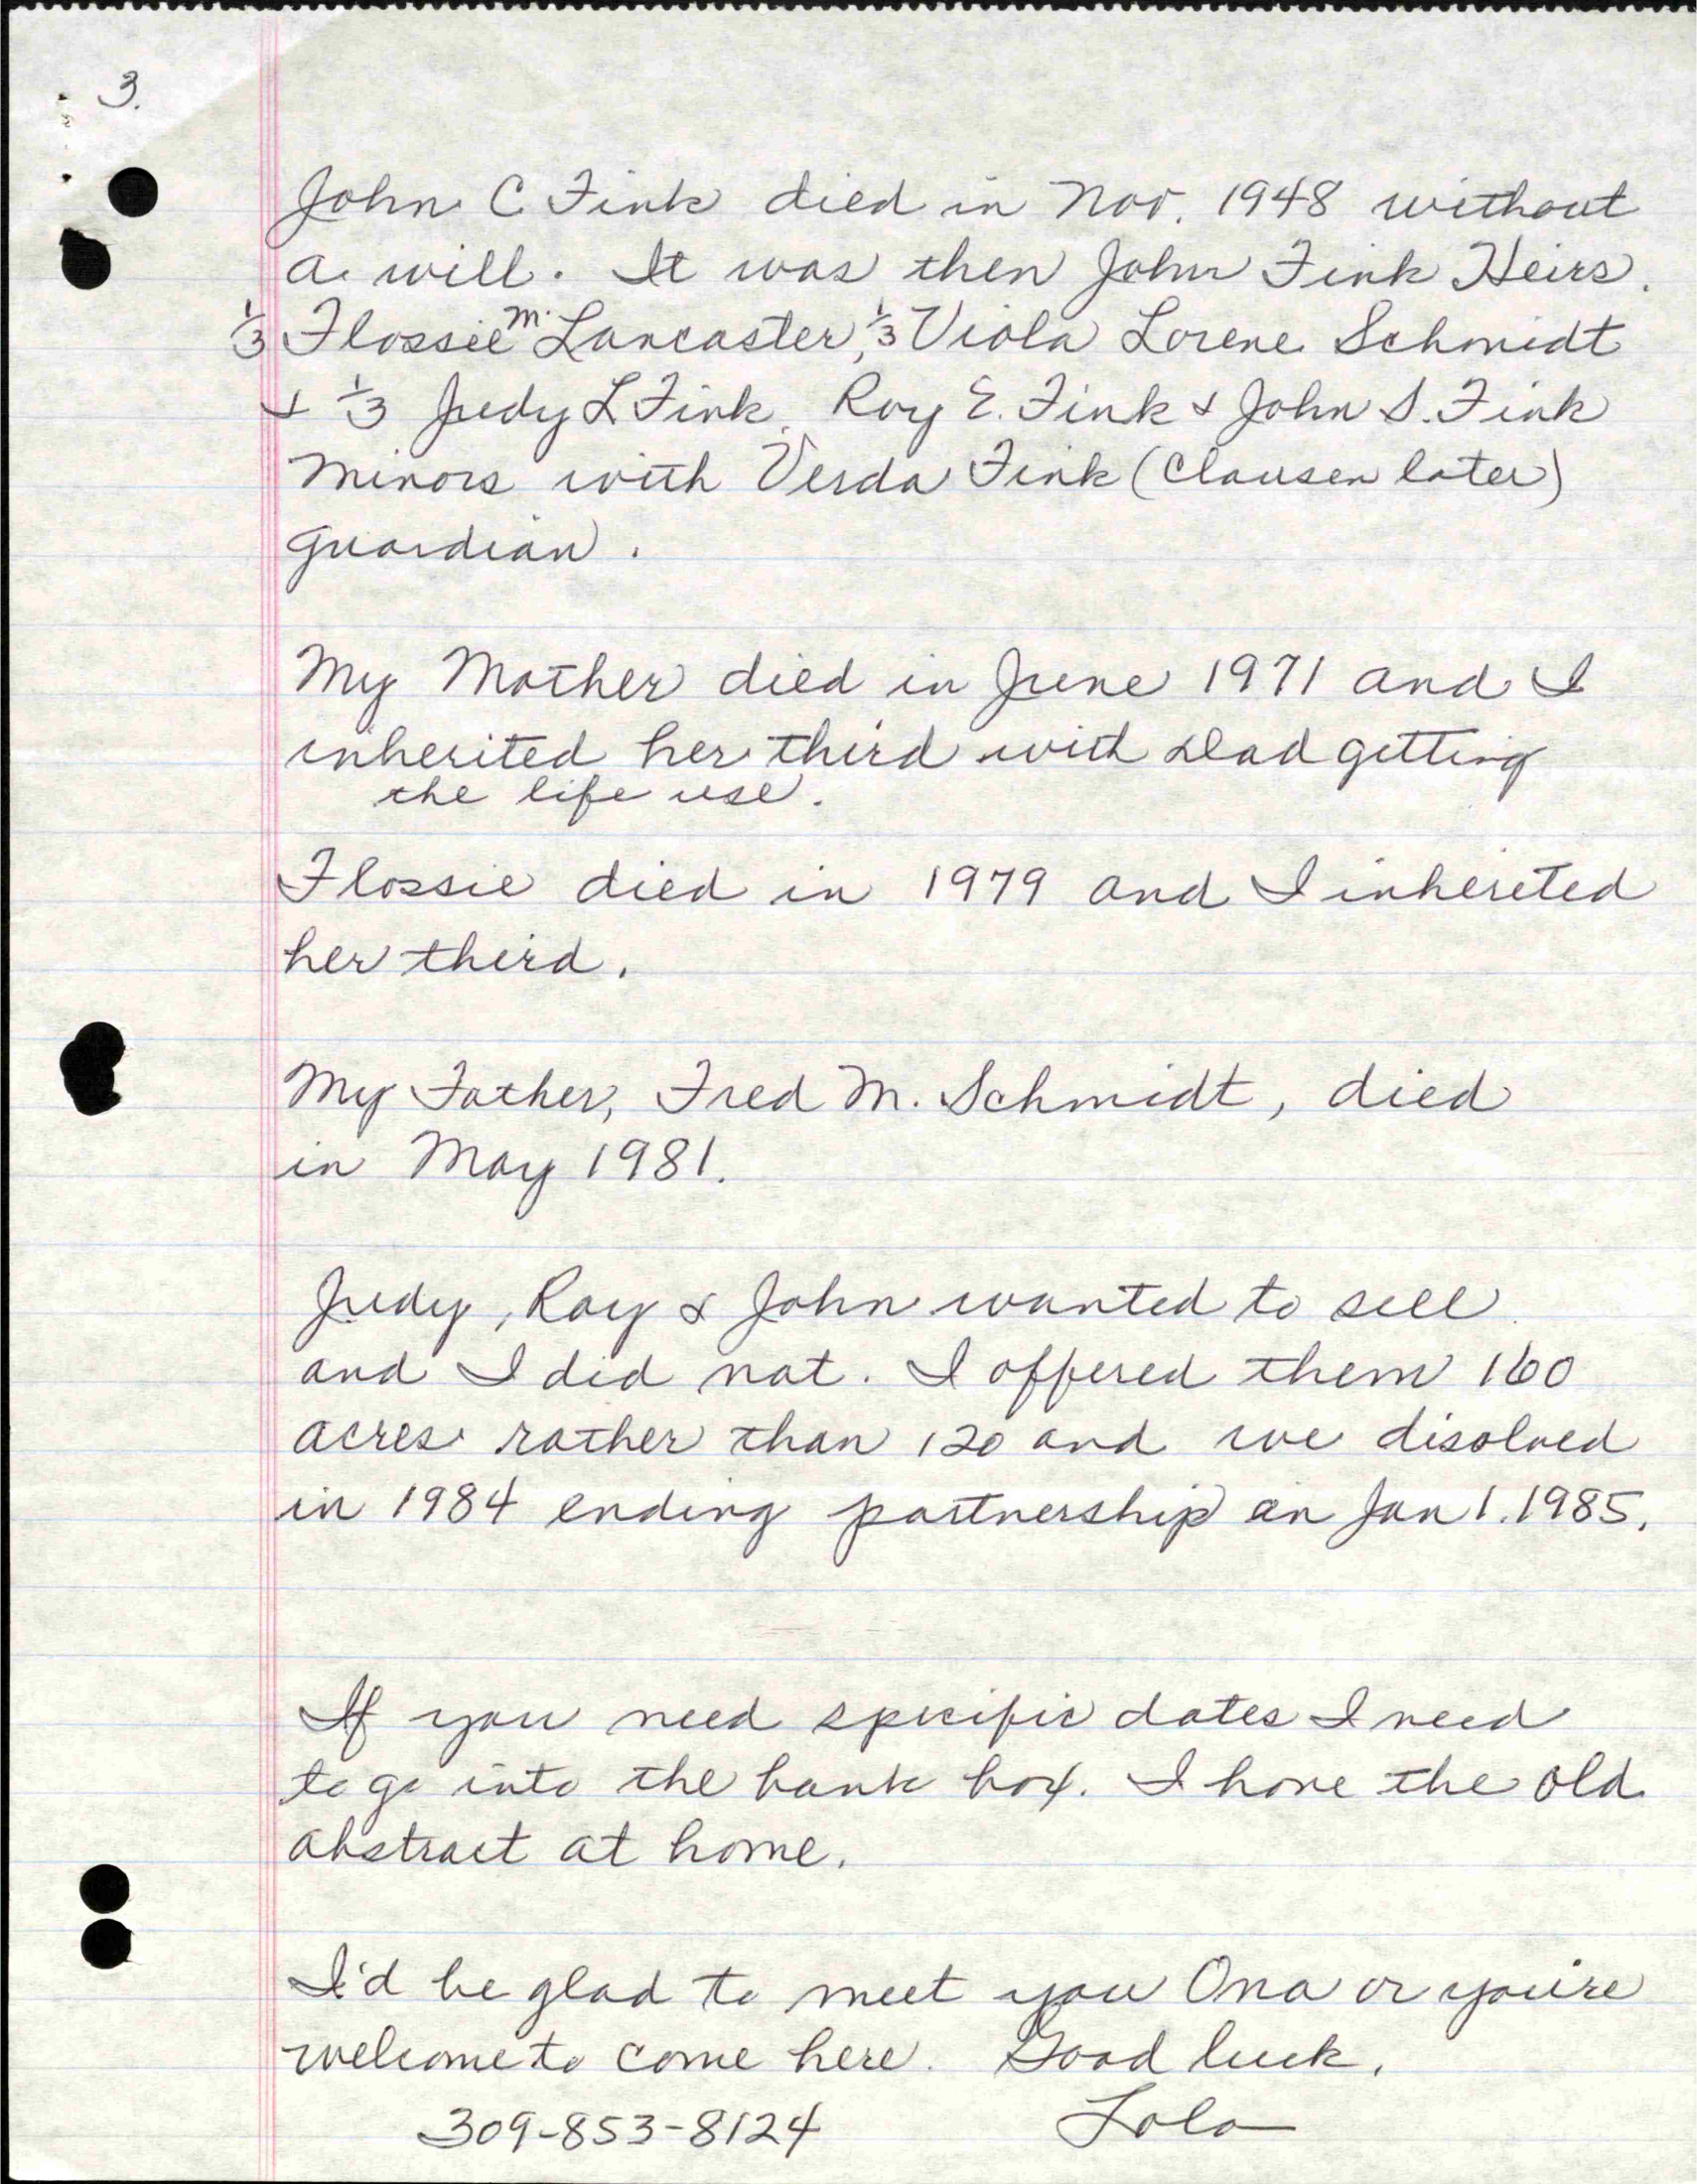 3.
John C Fink died in Nov. 1948 without
a will. It was then John Fink Heirs.
1/3 Flossie M. Lancaster, 1/3 Viola Lorene Schmidt
+ 1/3 Judy L Fink, Roy E. Fink & John S. Fink
minors with Verda Fink (Clausen later)
guardian.
My Mother died in June 1971 and I
inherited her third with Dad getting
the life use.
Flossie died in 1979 and I inhereted
her third.
My Father, Fred M. Schmidt, died
in May 1981.
Judy, Roy & John wanted to sell
and I did not. I offered them 160
acres rather than 120 and we disolved
in 1984 ending partnership on Jan 1. 1985.
If you need specific dates I need
to go into the bank box. I have the old
abstract at home.
I'd be glad to meet you Ona or you're
welcome to come here. Good luck.
309-853-8124 Lola